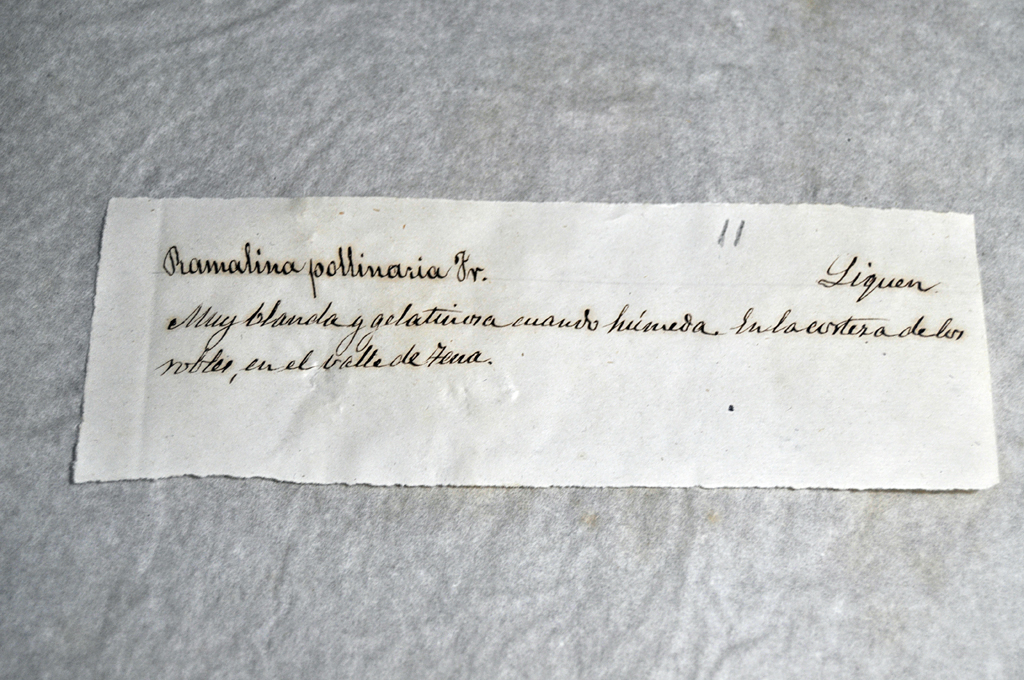 11
Ramalina pollinaria Fr. Liquen
Muy blanda y gelatinosa cuando húmeda. En la corteza de los
robles, en el valle de Tena.